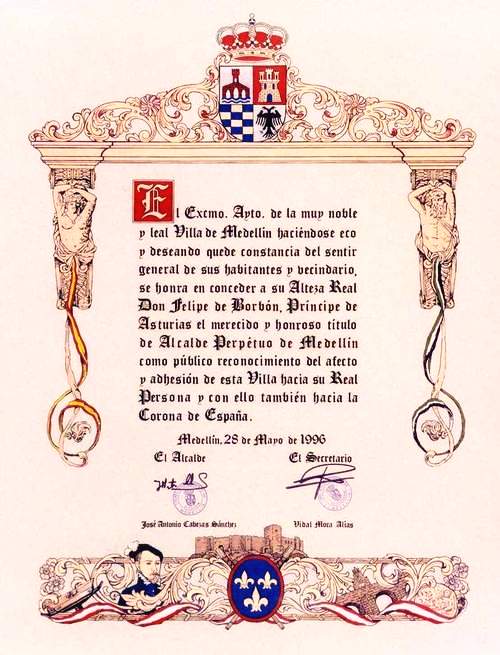 El Excmo. Ayto. de la muy noble
y leal Villa de Medellín haciéndose eco
y deseando quede constancia del sentir
general de sus habitantes y vecindario,
se honra en conceder a su Alteza Real
Don Felipe de Borbón, Príncipe de
Asturias el merecido y honroso título
de Alcalde Perpétuo de Medellín
como público reconocimiento del afecto
y adhesión de esta Villa hacia su Real
Persona y con ello también hacia la
Corona de España.
Medellín, 28 de Mayo de 1996
El Alcalde El Secretario
José Antonio Cabezas Sánchez Vidal Mora Alías